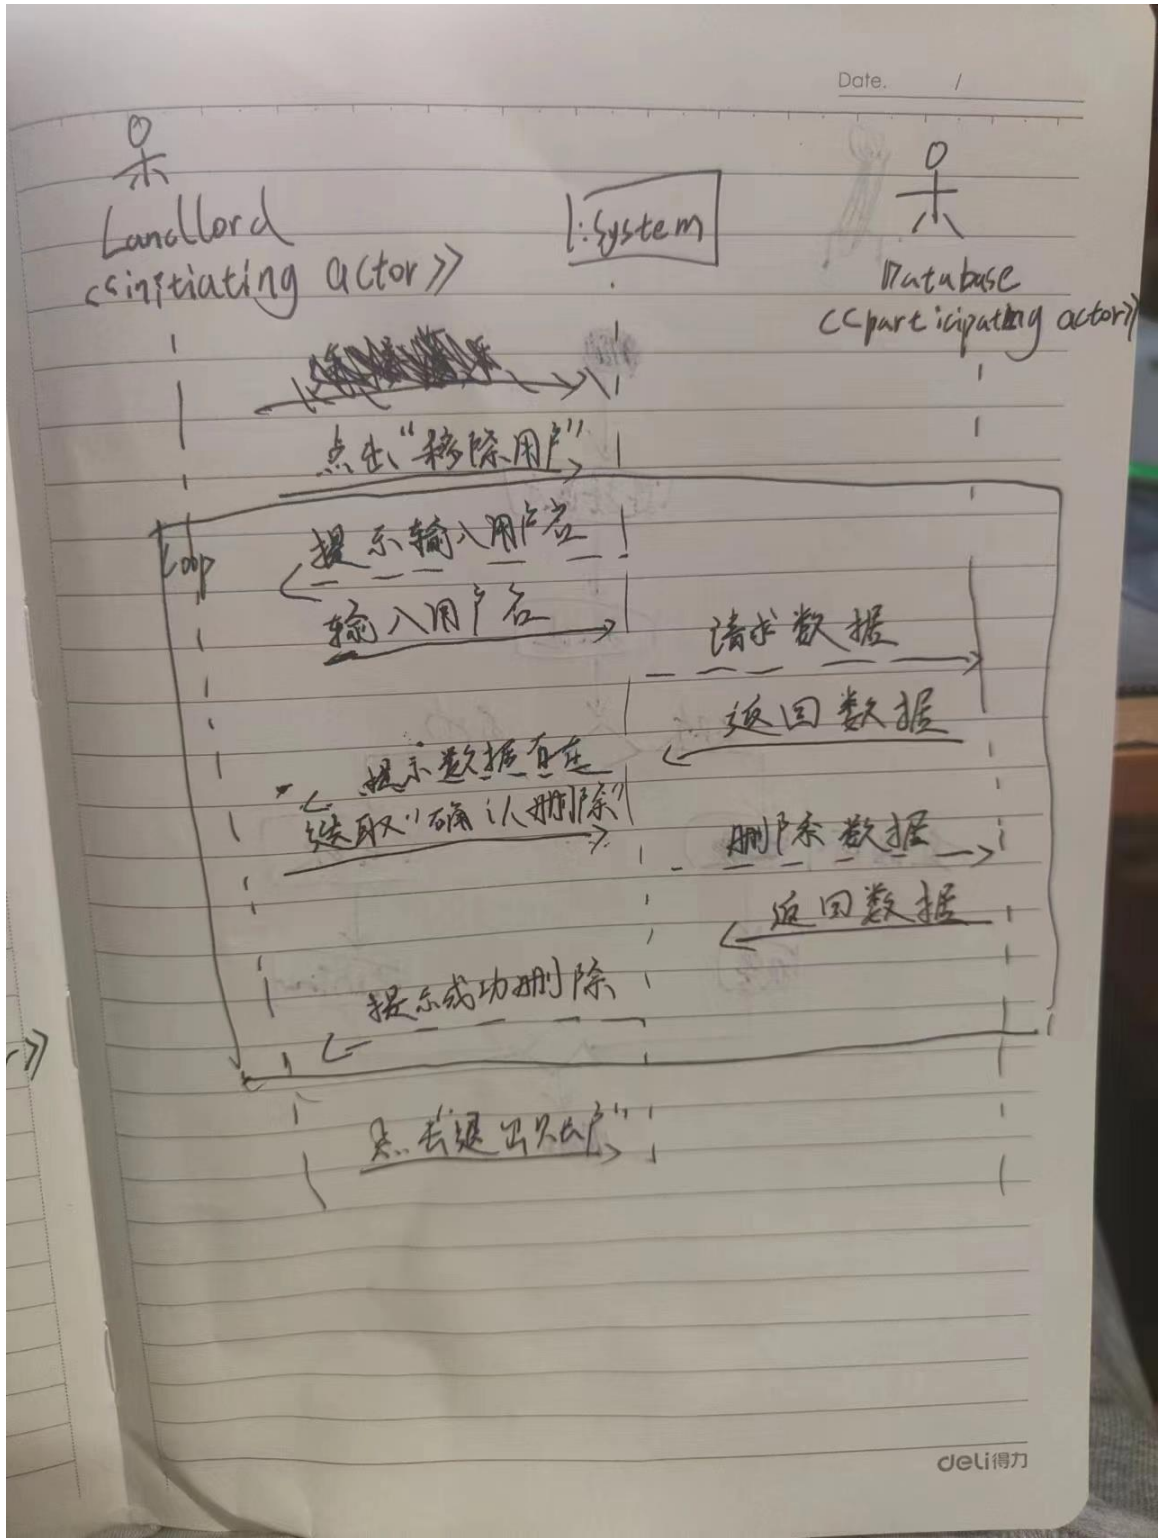 Date. /
Landlord
:System
<<initiating actor>>
Database
<<participating actor>>
点击“移除用户”
Loop
提示输入用户名
输入用户名
请求数据
返回数据
提示数据存在
选取“确认删除”
删除数据
返回数据
提示成功删除
点击“退出账户”
deli得力